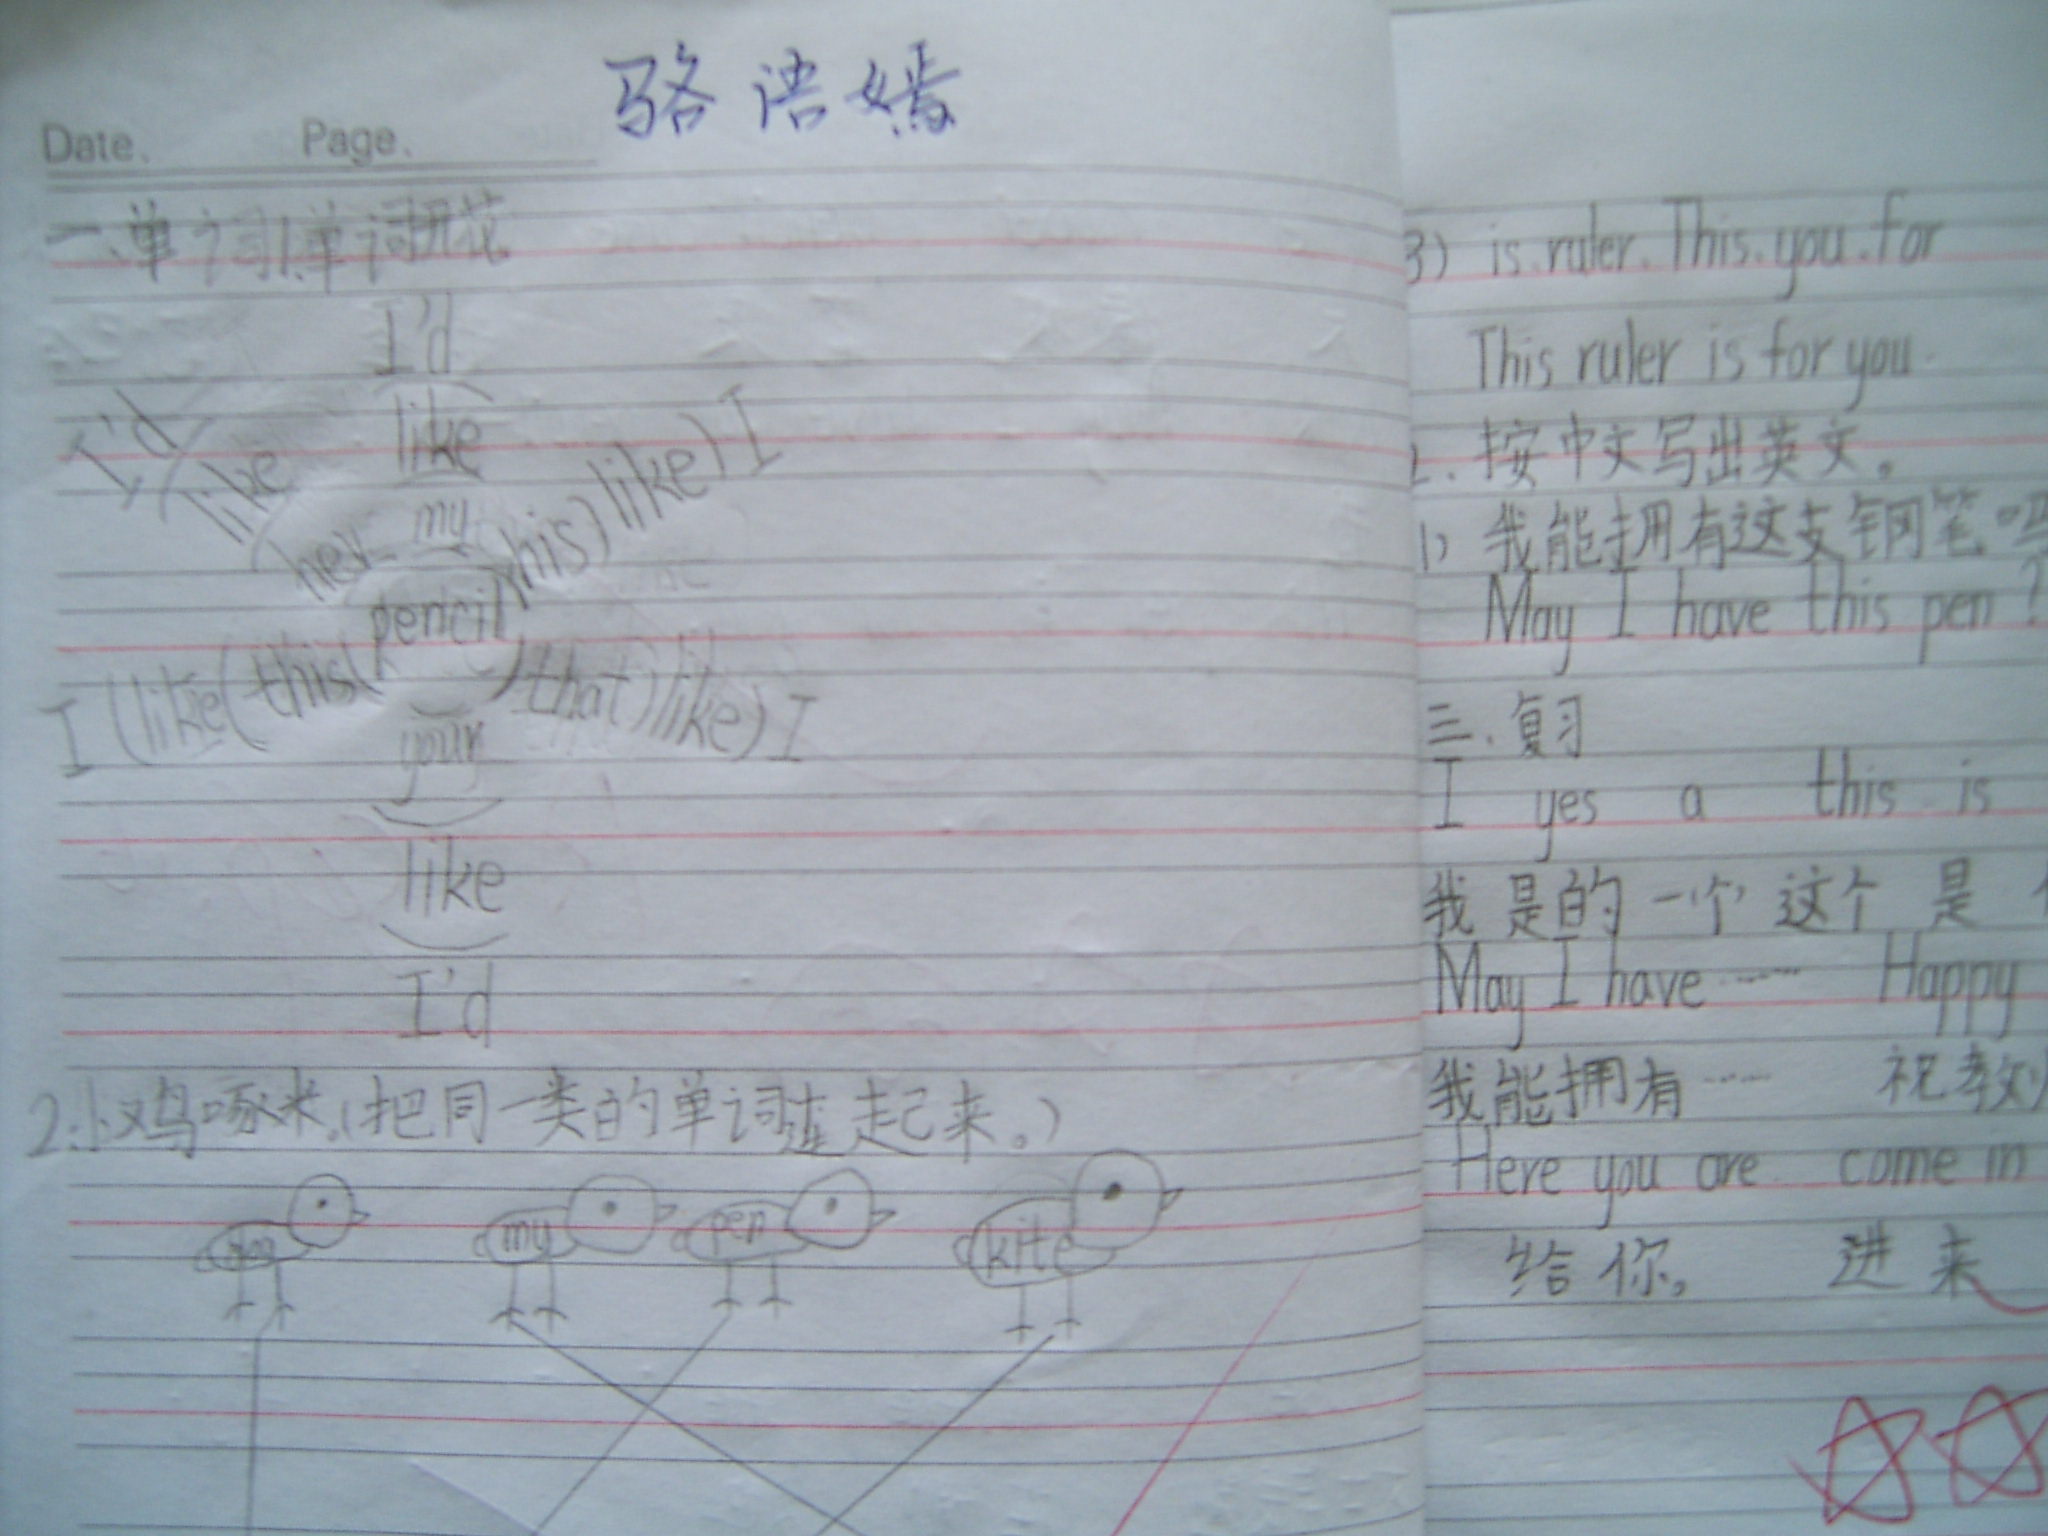 骆语嫣
Date. Page.
一、单词1.单词开花
I'd
I'd like like) I
like my his)
her pencil
I (like (this ( ) that) like) I
your
like
I'd
2.小鸡啄米。(把同一类的单词连起来。)
my pen kite
3) is.ruler.This.you.for
This ruler is for you.
2.按中文写出英文。
1) 我能拥有这支钢笔吗
May I have this pen?
三.复习
I yes a this is
我 是的 一个 这个 是
May I have …… Happy
我能拥有…… 祝教
Here you are come in
给你。 进来